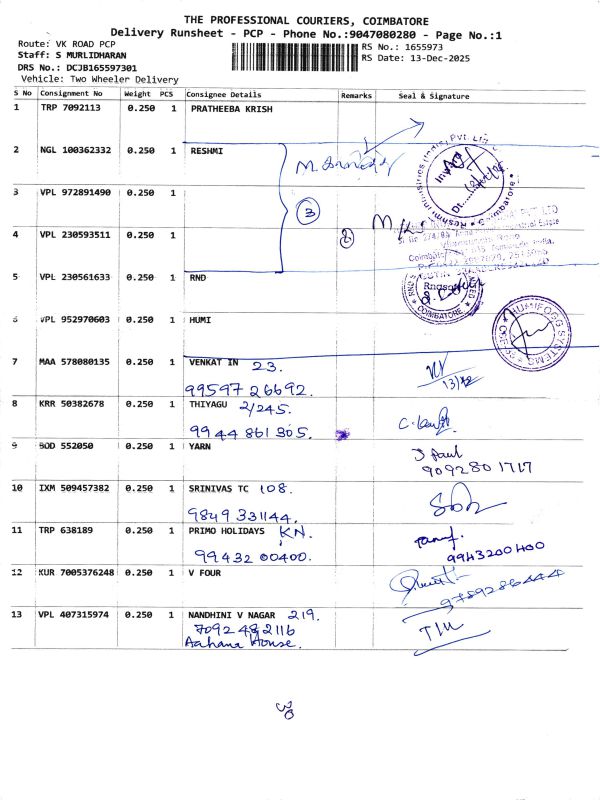 THE PROFESSIONAL COURIERS, COIMBATORE
Delivery Runsheet - PCP - Phone No.:9047080280 - Page No.:1
Route: VK ROAD PCP
RS No.: 1655973
Staff: S MURLIDHARAN
RS Date: 13-Dec-2025
DRS No.: DCJB165597301
Vehicle: Two Wheeler Delivery
S No Consignment No Weight PCS Consignee Details Remarks Seal & Signature
1 TRP 7092113 0.250 1 PRATHEEBA KRISH
2 NGL 100362332 0.250 1 RESHMI
3 VPL 972891490 0.250 1
3
4 VPL 230593511 0.250 1
2
5 VPL 230561633 0.250 1 RND
COIMBATORE
6 VPL 952970603 0.250 1 HUMI
7 MAA 578080135 0.250 1 VENKAT IN 23.
99597 26692.
13/12
8 KRR 50382678 0.250 1 THIYAGU 2/245.
9944 861 305.
9 BOD 552050 0.250 1 YARN
J Paul
9092801717
10 IXM 509457382 0.250 1 SRINIVAS TC 108.
9849 331144.
11 TRP 638189 0.250 1 PRIMO HOLIDAYS KN.
99432 00400.
9943200400
12 KUR 7005376248 0.250 1 V FOUR
13 VPL 407315974 0.250 1 NANDHINI V NAGAR 219.
7092 482116
Aahana House.